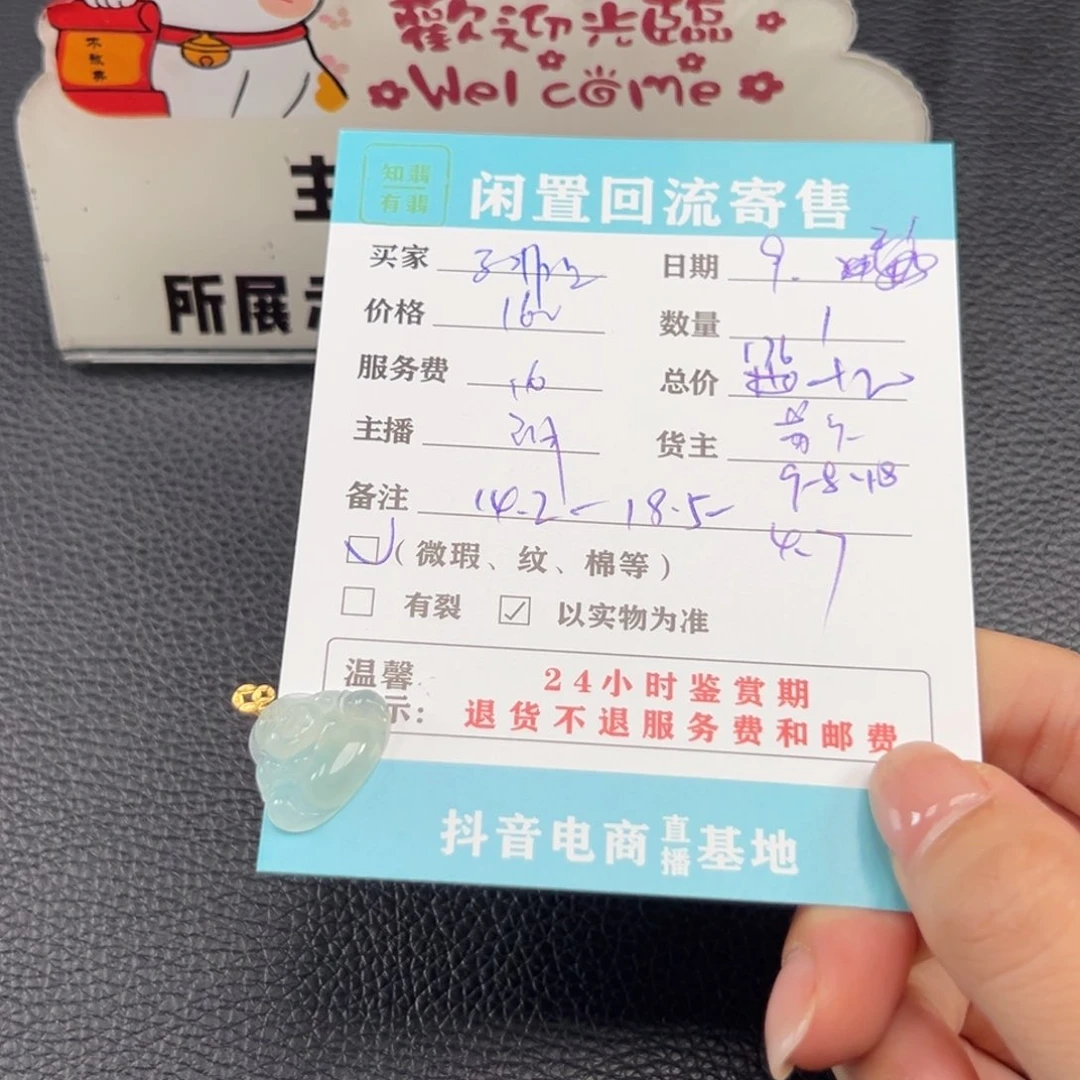 不
歡迎光臨
Welcome
主
所展示
知翡
有翡
闲置回流寄售
买家
日期 9.
价格 160
数量 1
服务费 16
总价 176 +12
主播
货主
9-8-18
备注 14.2-18.5-
4.7
(微瑕、纹、棉等)
有裂 ☑ 以实物为准
温馨 24小时鉴赏期
示: 退货不退服务费和邮费
抖音电商直播基地